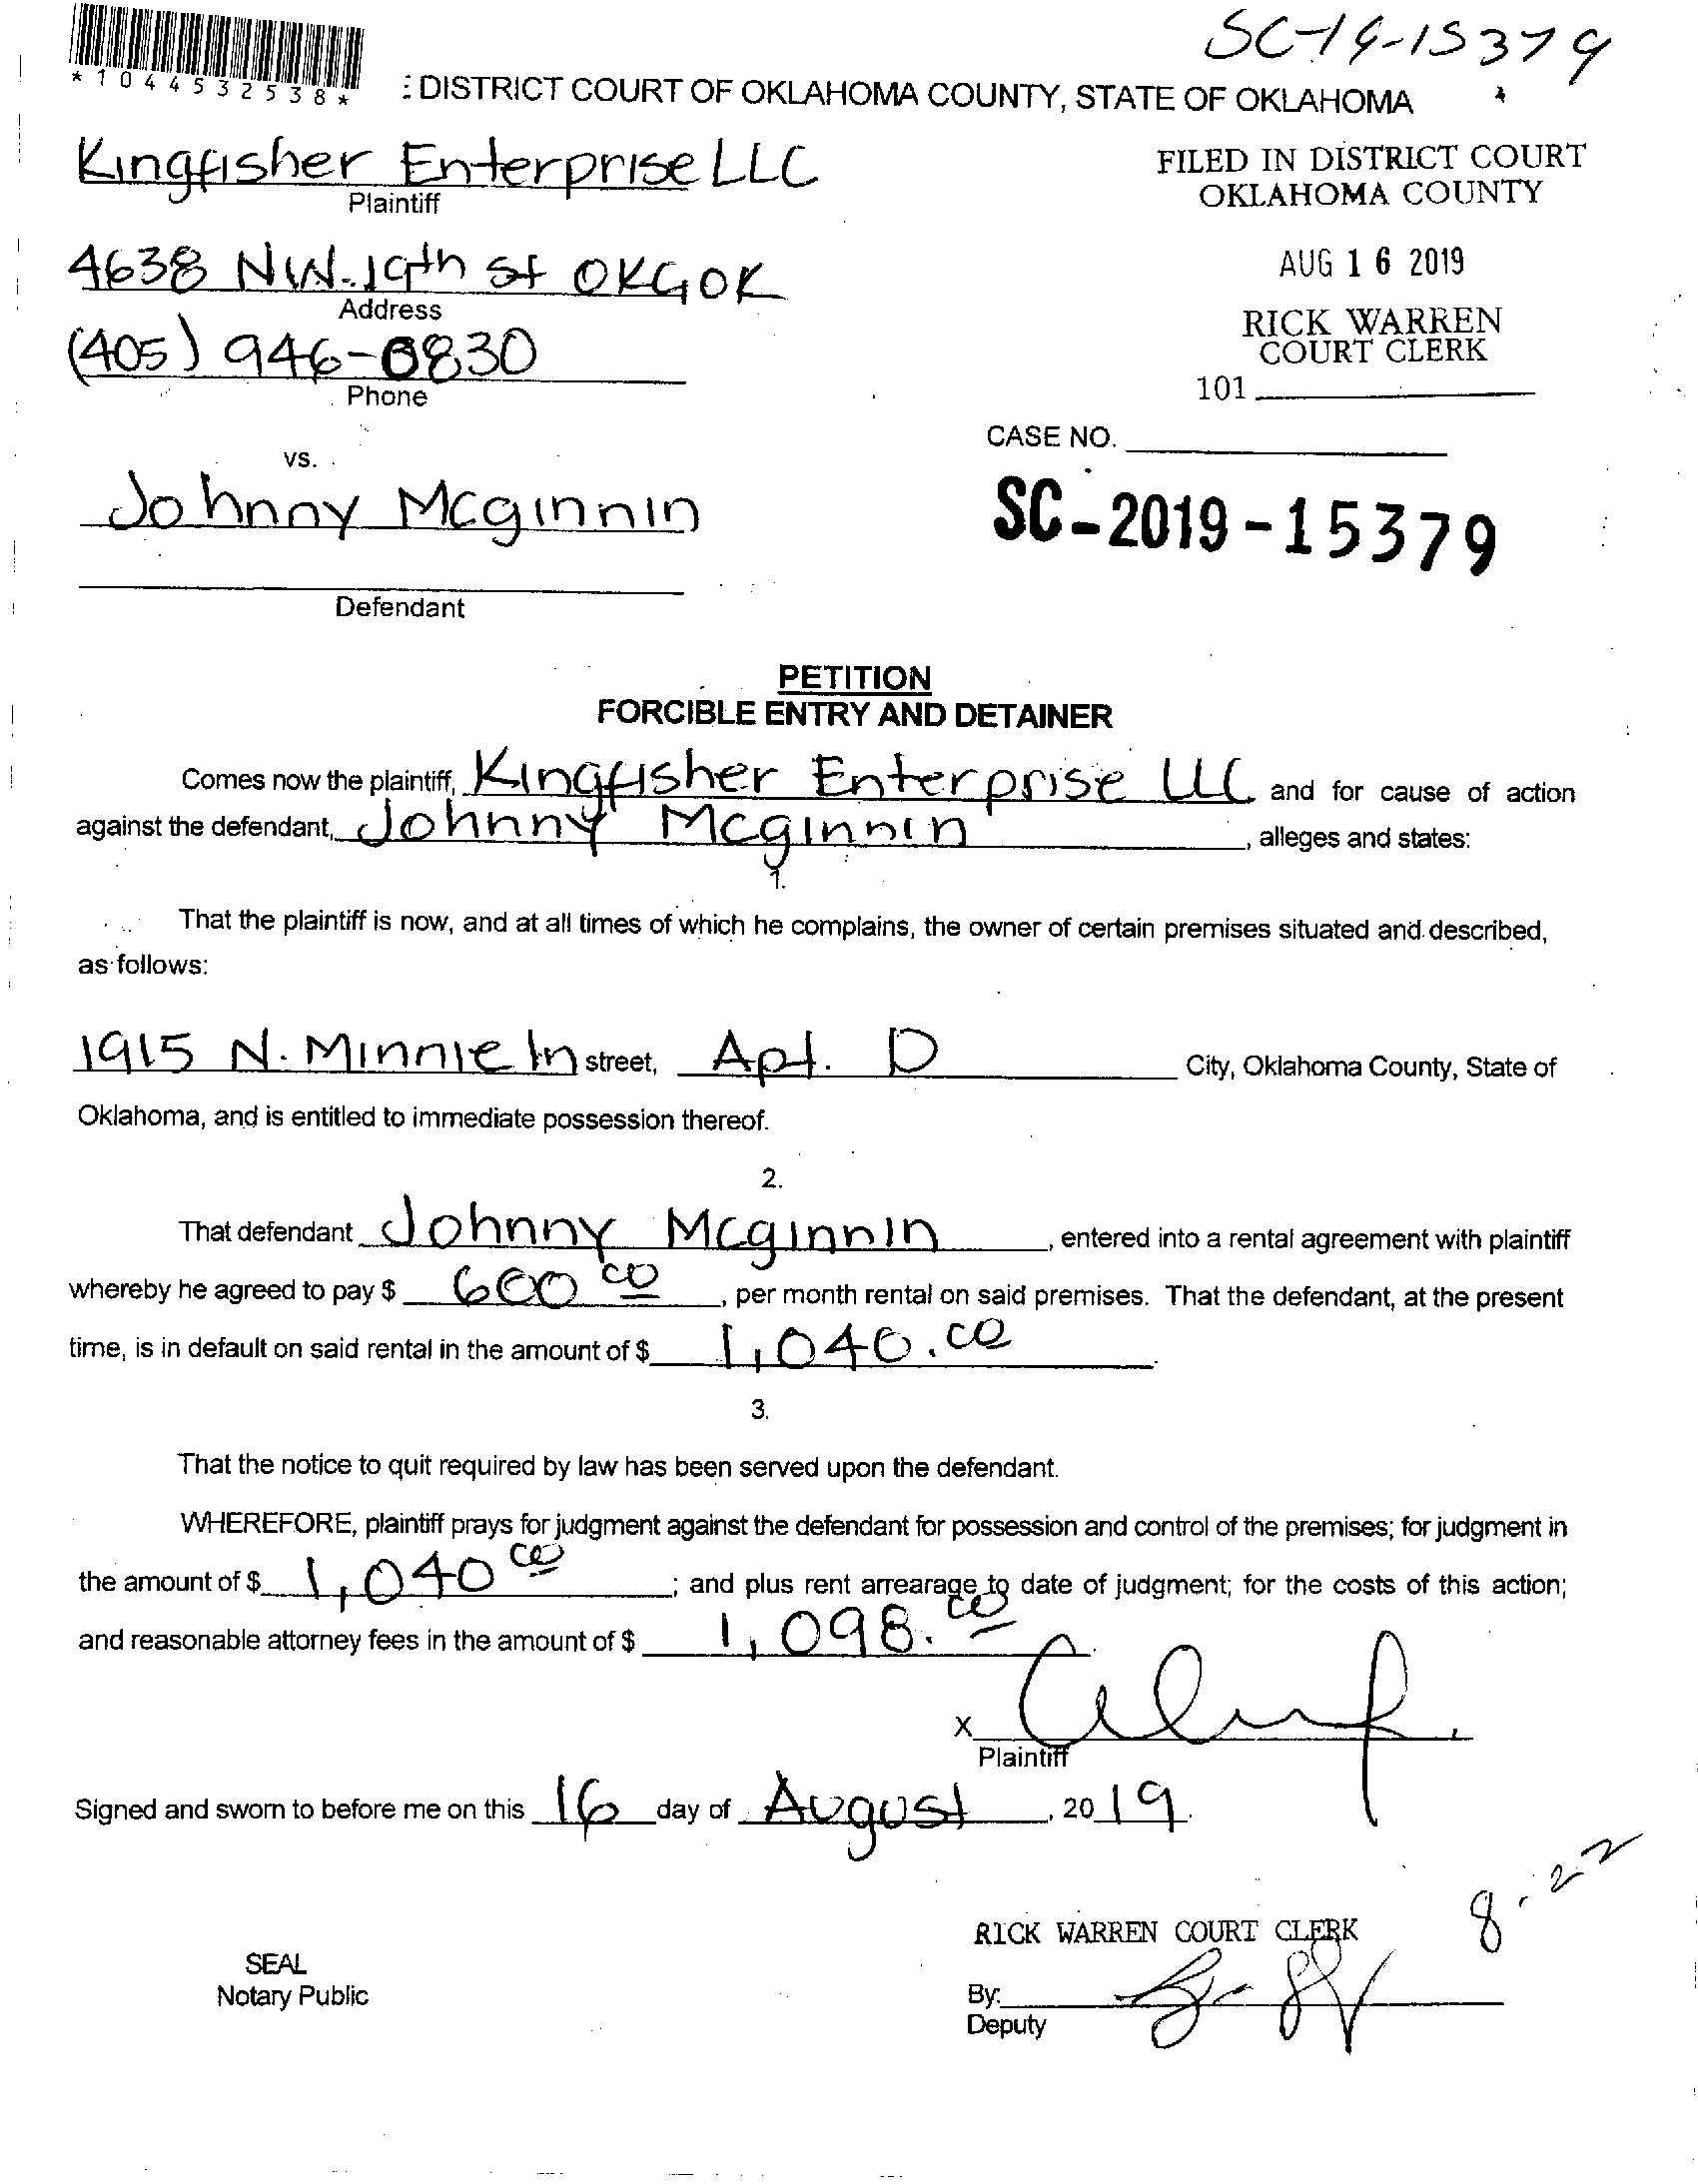 SC-19-15379
*1044532538*
: DISTRICT COURT OF OKLAHOMA COUNTY, STATE OF OKLAHOMA
Kingfisher Enterprise LLC
Plaintiff
FILED IN DISTRICT COURT
OKLAHOMA COUNTY
4638 NW. 19th St OKC OK
Address
AUG 16 2019
(405) 946-0830
Phone
RICK WARREN
COURT CLERK
101
CASE NO.
vs.
Johnny Mcginnin
SC-2019-15379
Defendant
PETITION
FORCIBLE ENTRY AND DETAINER
Comes now the plaintiff, Kingfisher Enterprise LLC and for cause of action
against the defendant, Johnny Mcginnin, alleges and states:
1.
That the plaintiff is now, and at all times of which he complains, the owner of certain premises situated and described,
as follows:
1915 N. Minnie ln street, Apt. D City, Oklahoma County, State of
Oklahoma, and is entitled to immediate possession thereof.
2.
That defendant Johnny Mcginnin, entered into a rental agreement with plaintiff
whereby he agreed to pay $ 600 00, per month rental on said premises. That the defendant, at the present
time, is in default on said rental in the amount of $ 1,040.00
3.
That the notice to quit required by law has been served upon the defendant.
WHEREFORE, plaintiff prays for judgment against the defendant for possession and control of the premises; for judgment in
the amount of $ 1,040 00; and plus rent arrearage to date of judgment; for the costs of this action;
and reasonable attorney fees in the amount of $ 1,098.00
X
Plaintiff
Signed and sworn to before me on this 16 day of August, 2019.
8-22
RICK WARREN COURT CLERK
SEAL
Notary Public
By:
Deputy